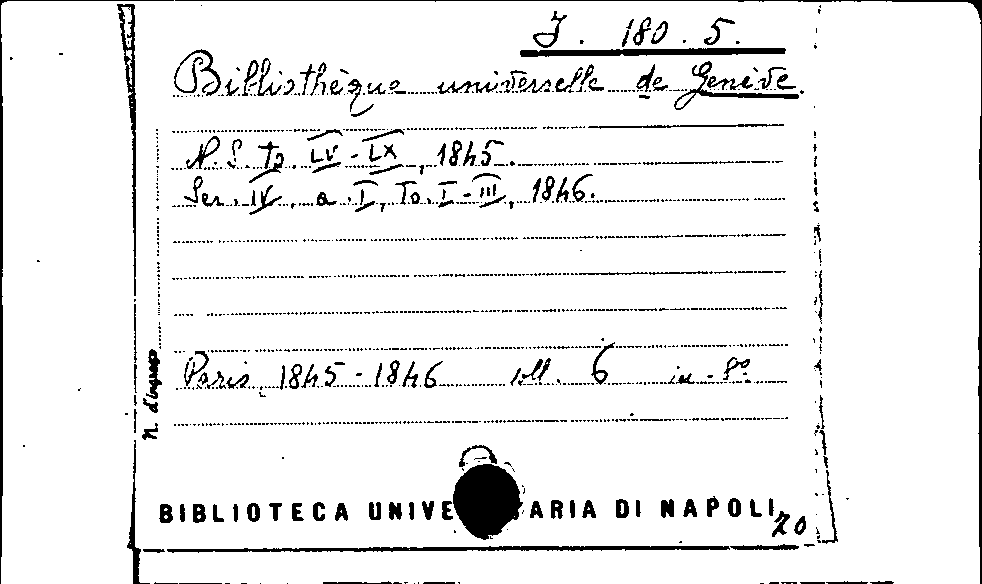 J. 180. 5.
Bibliothèque universelle de Genève.
N. S. To. LV - LX, 1845.
Ser. IV, a. I, To. I - III, 1846.
Paris, 1845 - 1846 voll. 6 in - 8°.
N. d'ingresso
BIBLIOTECA UNIVE ARIA DI NAPOLI
20